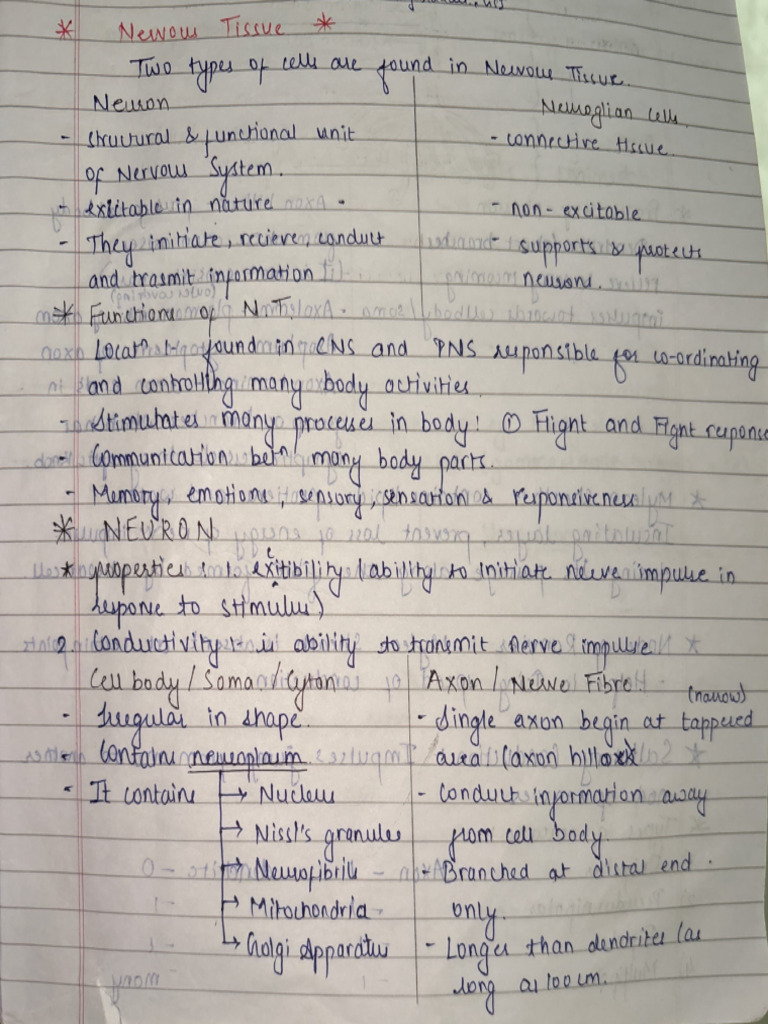 * Nervous Tissue *
Two types of cells are found in Nervous Tissue.
Neuron
- structural & functional unit
of Nervous System.
- exictable in nature
- They initiate, recieve conduct
and trasmit information
Neuroglian cells
- connective tissue.
- non-excitable
- supports & protects
neurons.
* Functions of N.T
Locatn :- found in CNS and PNS responsible for co-ordinating
and controlling many body activities.
- Stimutates many processes in body! ① Flight and Fight response
- Communication betn many body parts.
- Memory, emotions, sensory, sensation & responsiveness
* NEURON
* properties :- 1. exeitibility (ability to initiate nerve impulse in
response to stimulus)
2. Conductivity :- is ability to transmit nerve impulse
Cell body / Soma / Cyton
- Irregular in shape.
- Contains neuroplasm
- It contains → Nucleus
→ Nissl's granules
→ Neurofibrils
→ Mitochondria
→ Golgi Apparatus
Axon / Nerve Fibre.
(narrow)
- Single axon begin at tappered
area (axon hillock)
- Conduct information away
from cell body.
- Branched at distal end
only.
- Longer than dendrites (as
long as 100 cm.